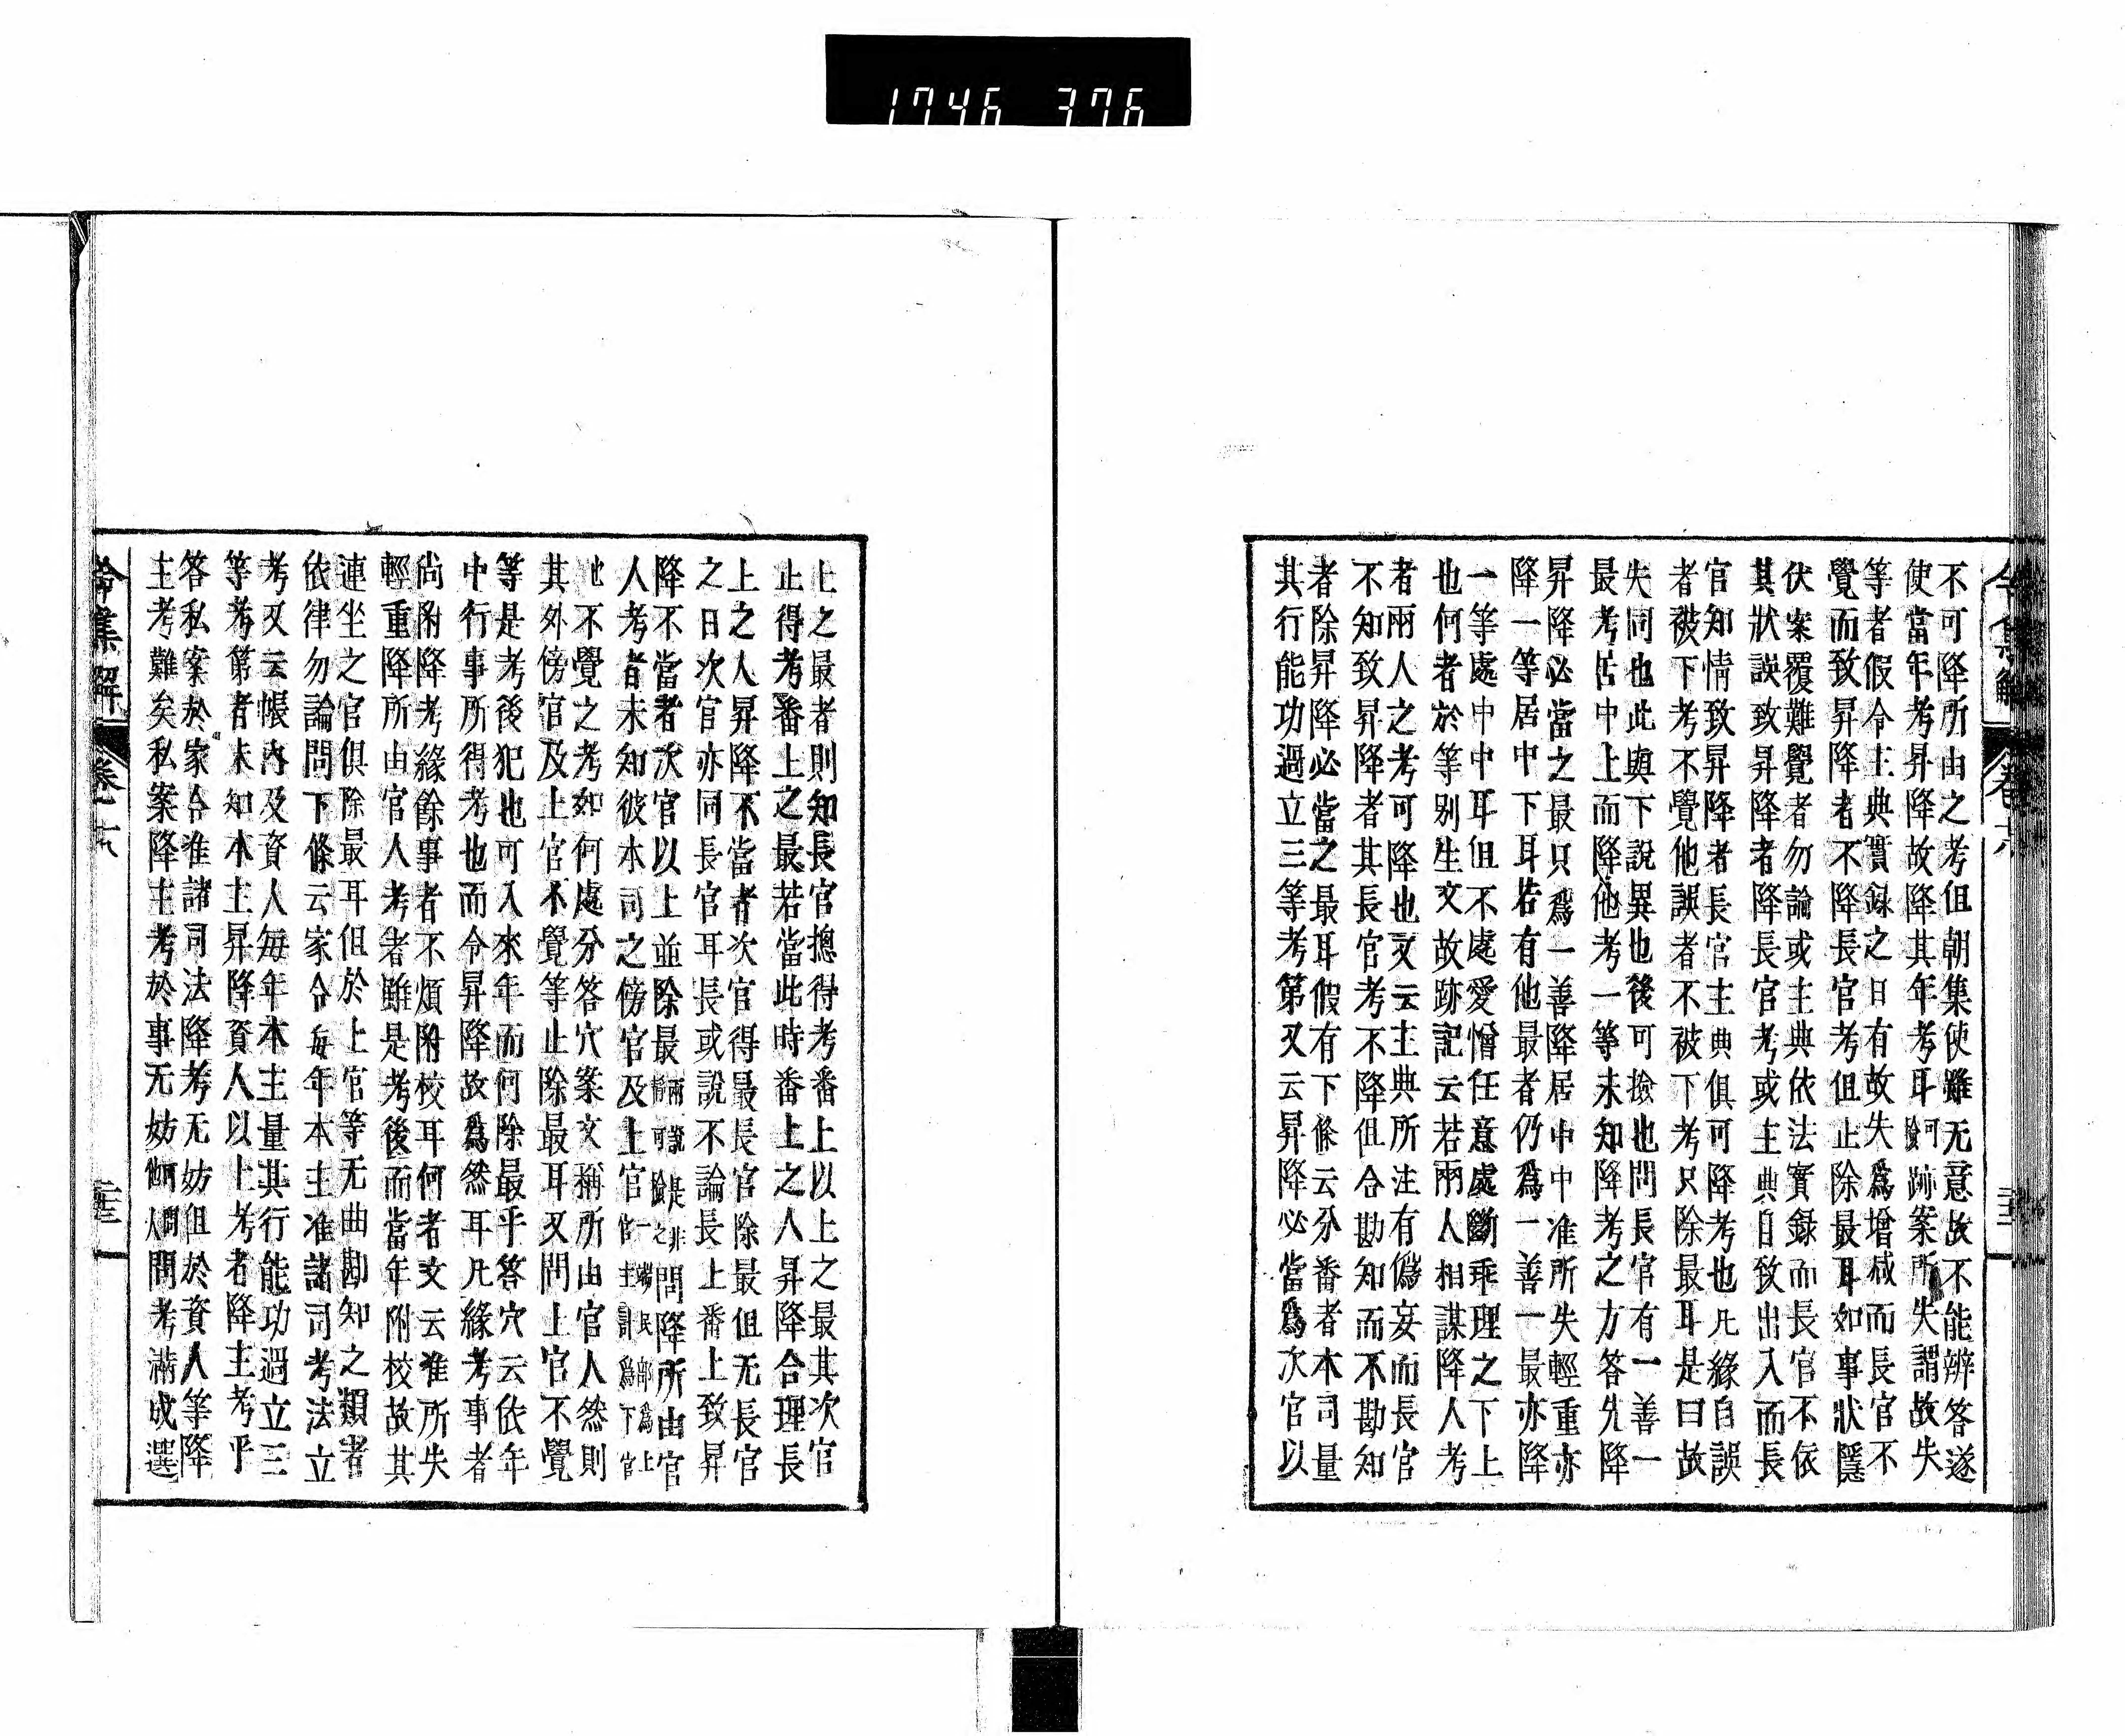 1746 376
令集解 卷六
不可降所由之考但朝集使雖无意故不能辨答遂
使當年考昇降故降其年考耳跡案所失謂故失
等者假令主典實錄之日有故失爲增减而長官不
覺而致昇降者不降長官考但止除最耳如事狀隱
伏案覆難覺者勿論或主典依法實錄而長官不依
其狀誤致昇降者降長官考或主典自致出入而長
官知情致昇降者長官主典俱可降考也凡緣自誤
者被下考不覺他誤者不被下考只除最耳是曰故
失同也此與下說異也後可撿也問長官有一善一
最考居中上而降他考一等未知降考之方答先降
昇降必當之最只爲一善降居中中准所失輕重亦
降一等居中下耳若有他最者仍爲一善一最亦降
一等處中中耳但不處愛憎任意處斷乖理之下上
也何者於等别生文故跡記云若兩人相謀降人考
者兩人之考可降也文云主典所注有僞妄而長官
不知致昇降者其長官考不降但合勘知而不勘知
者除昇降必當之最耳假有下條云分番者本司量
其行能功過立三等考第又云昇降必當爲次官以
上之最者則知長官摠得考番上以上之最其次官
止得考番上之最若當此時番上之人昇降合理長
上之人昇降不當者次官得最長官除最但无長官
之日次官亦同長官耳長或說不論長上番上致昇
降不當者次官以上並除最兩說是非靜可撿之問降所由官
人考者未知彼本司之傍官及上官一端民部爲上官主計爲下官
也不覺之考如何處分答穴案文稱所由官人然則
其外傍官及上官不覺等止除最耳又問上官不覺
等是考後犯也可入來年而何除最乎答穴云依年
中行事所得考也而令昇降故爲然耳凡緣考事者
尚附降考緣餘事者不煩附校耳何者文云准所失
輕重降所由官人考者雖是考後而當年附校故其
連坐之官俱除最耳但於上官等无曲勘知之類者
依律勿論問下條云家令每年本主准諸司考法立
考又云帳內及資人每年本主量其行能功過立三
等考第者未知本主昇降資人以上考者降主考乎
答私案於家令准諸司法降考无妨但於資人等降
主考難矣私案降主考於事无妨問考滿成選
令集解 卷六